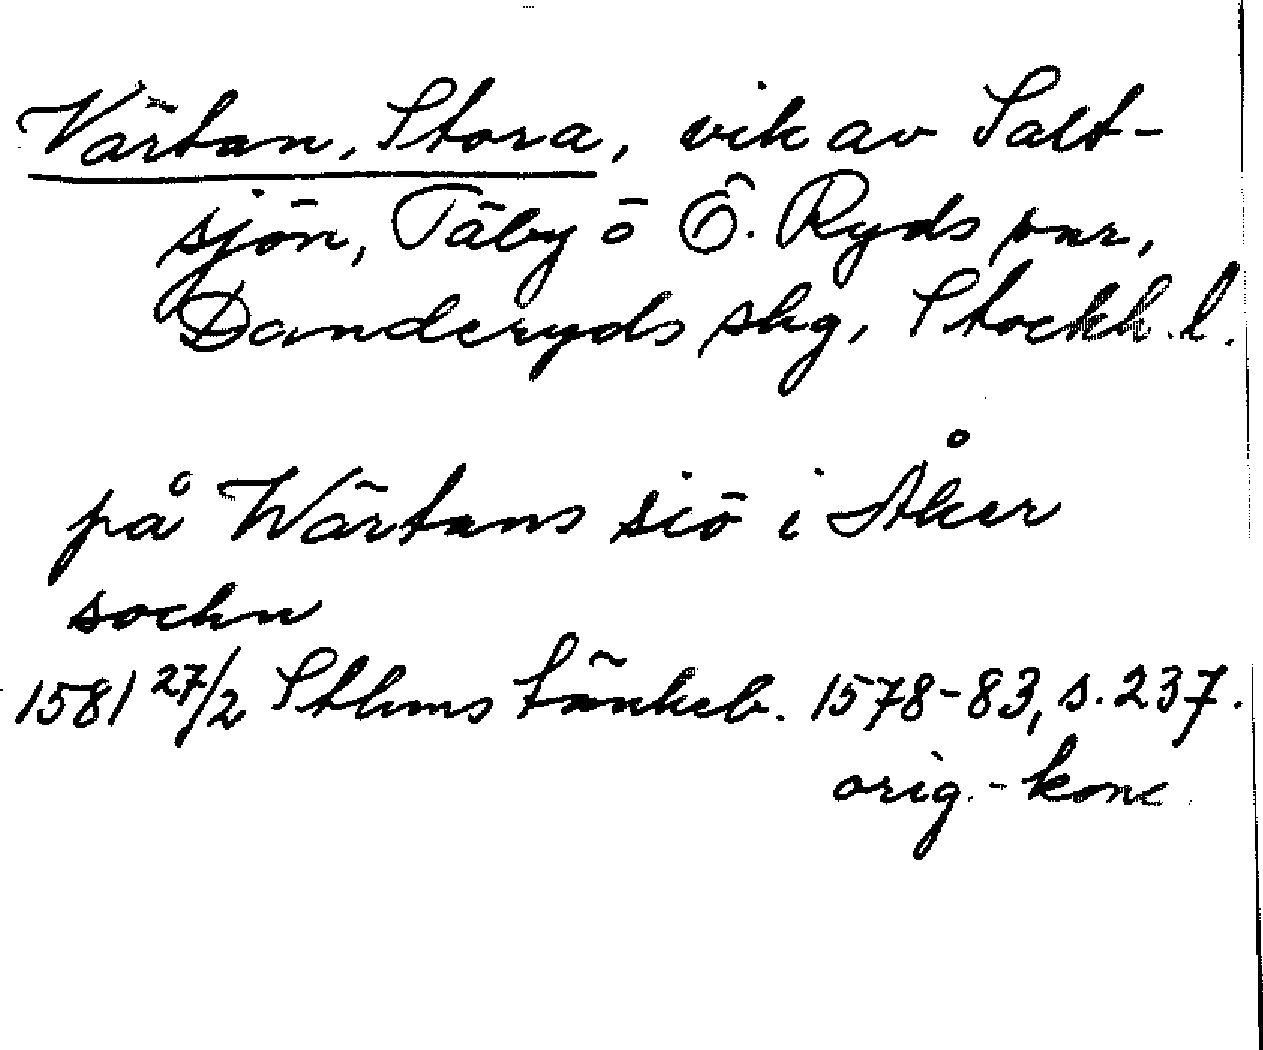 Värtan, Stora, vik av Salt-
sjön, Täby o Ö. Ryds snr,
Danderyds skg, Stockh. l.
på Wärtans siö i Åker
sochn
1581 27/2 Sthms tänkeb. 1578-83, s. 237.
orig.-konc